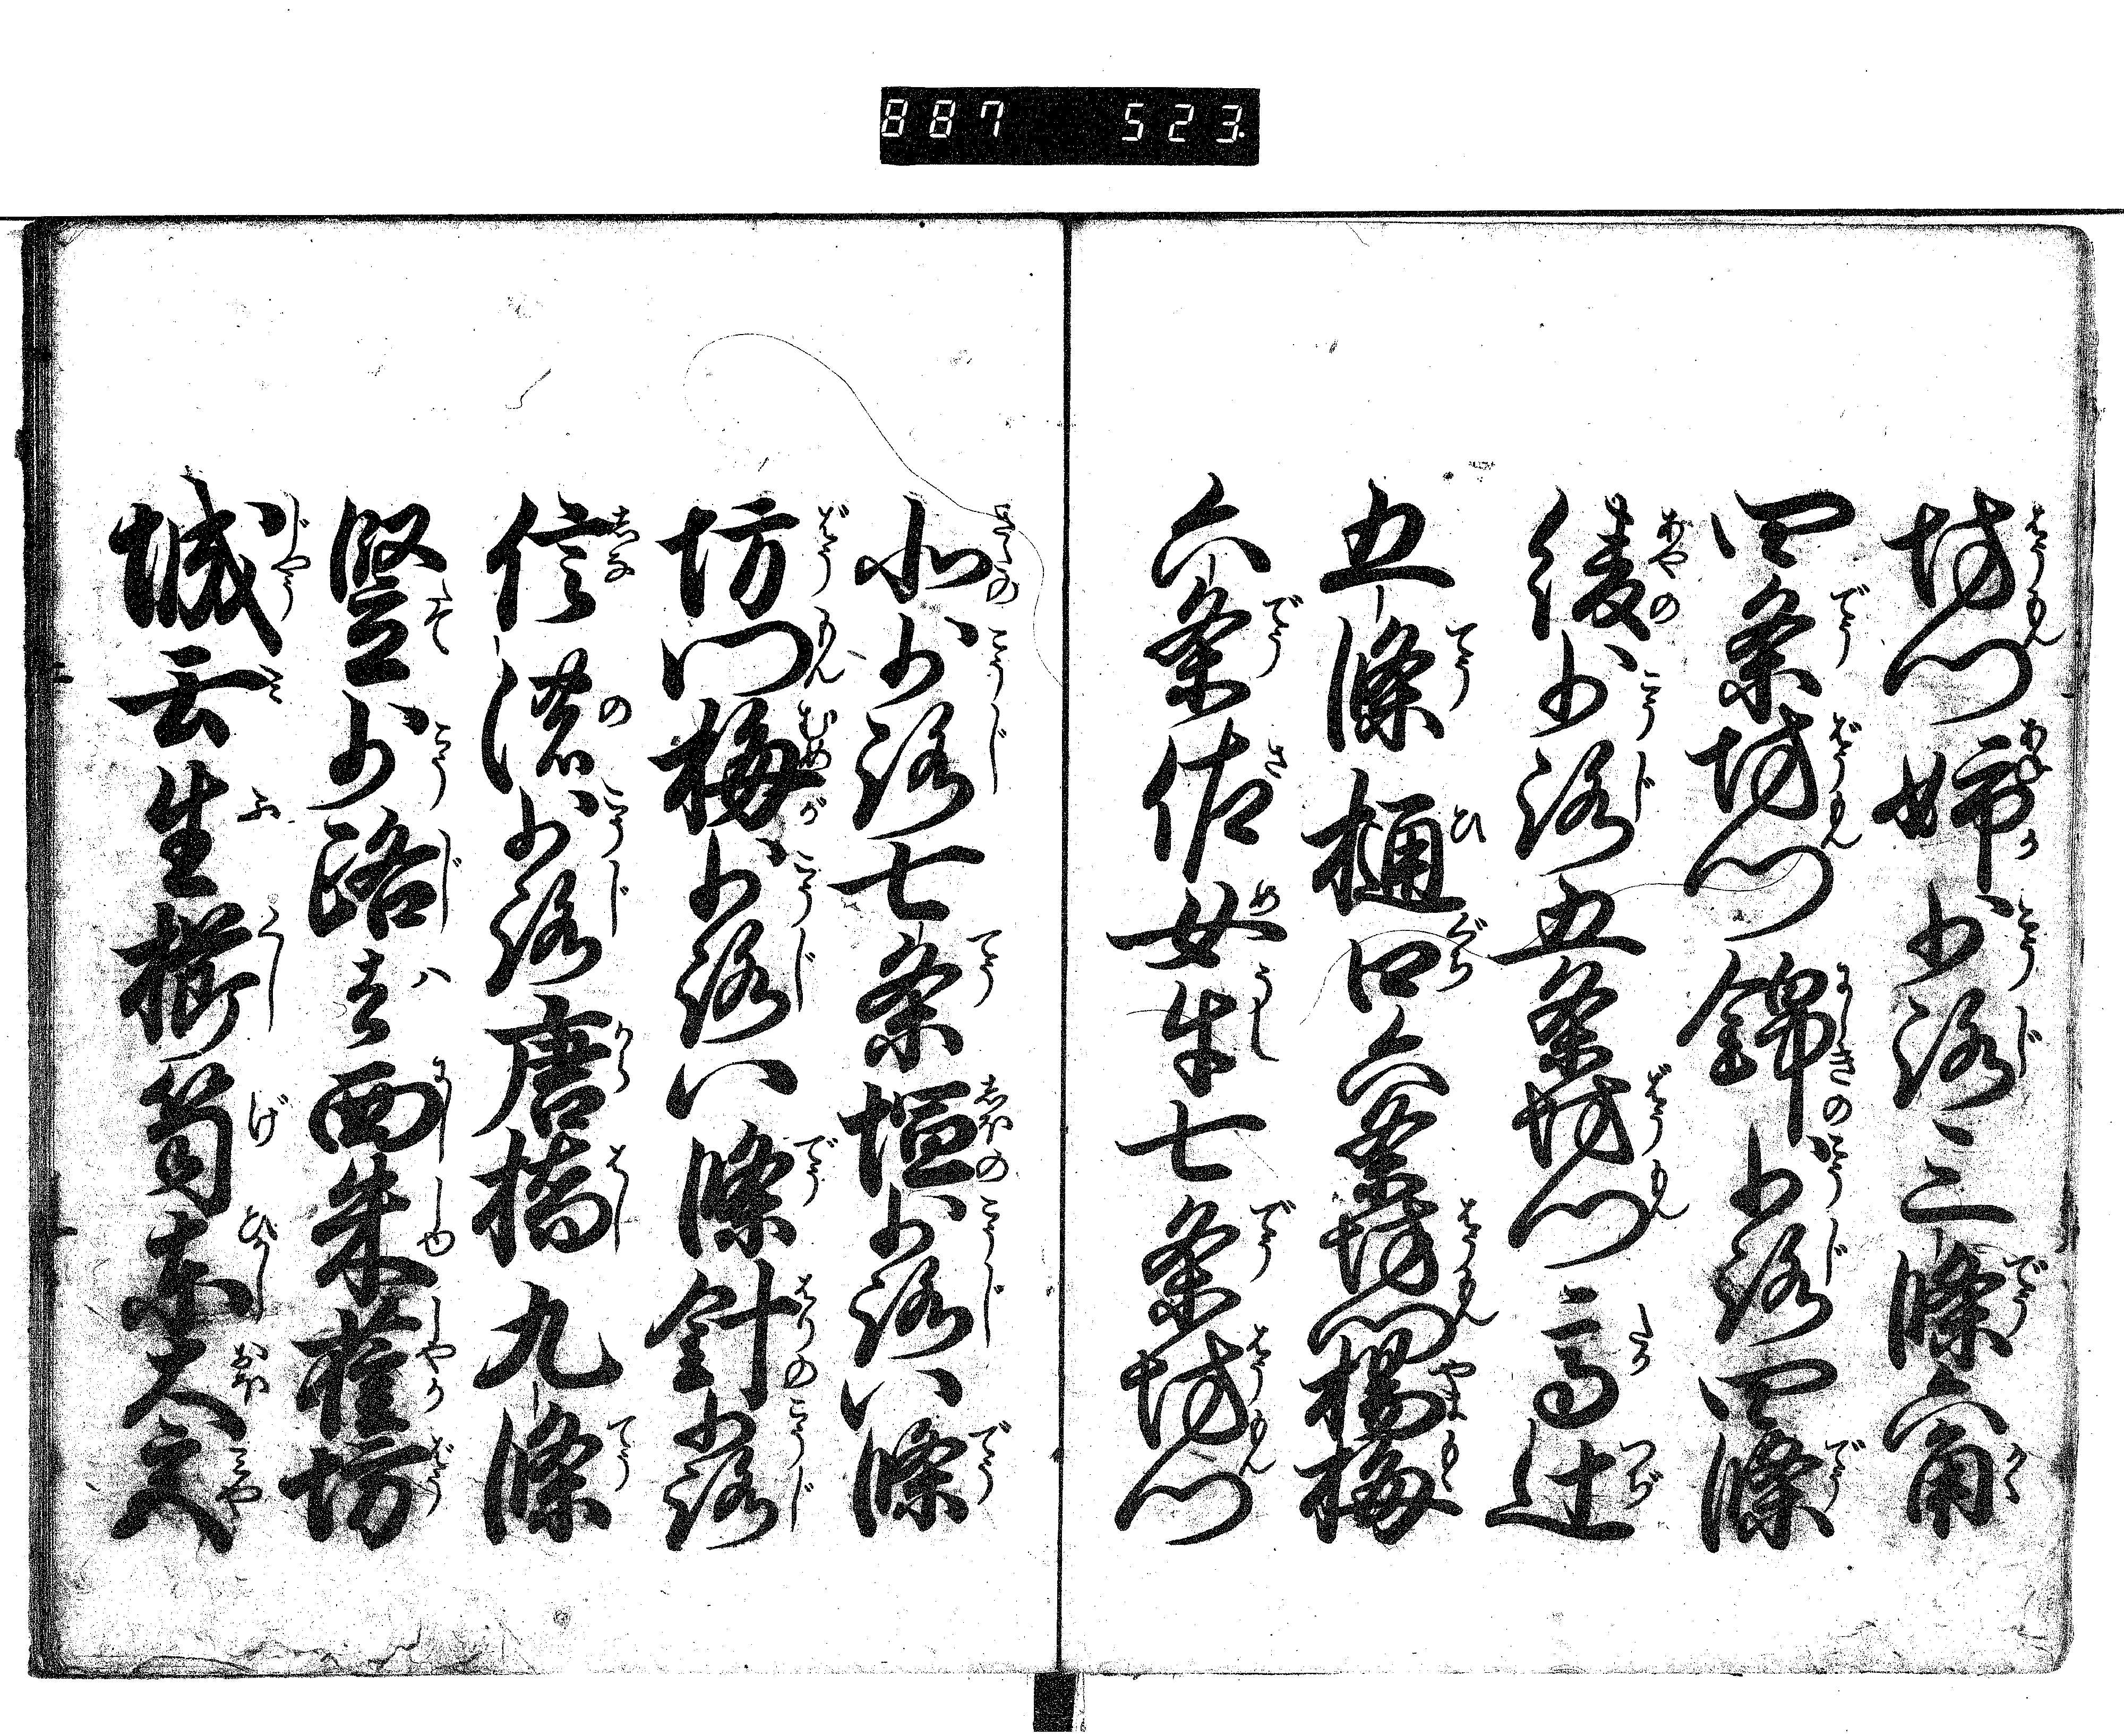 887 523
坊門姉小路三條六角
四条坊門錦小路四條
綾小路五条坊門高辻
五條樋口六条坊門楊梅
六条佐女牛七条坊門
北小路七条塩小路八條
坊門梅小路八條針小路
信濃小路唐橋九條
竪小路者西朱雀坊
城壬生櫛笥東大宮